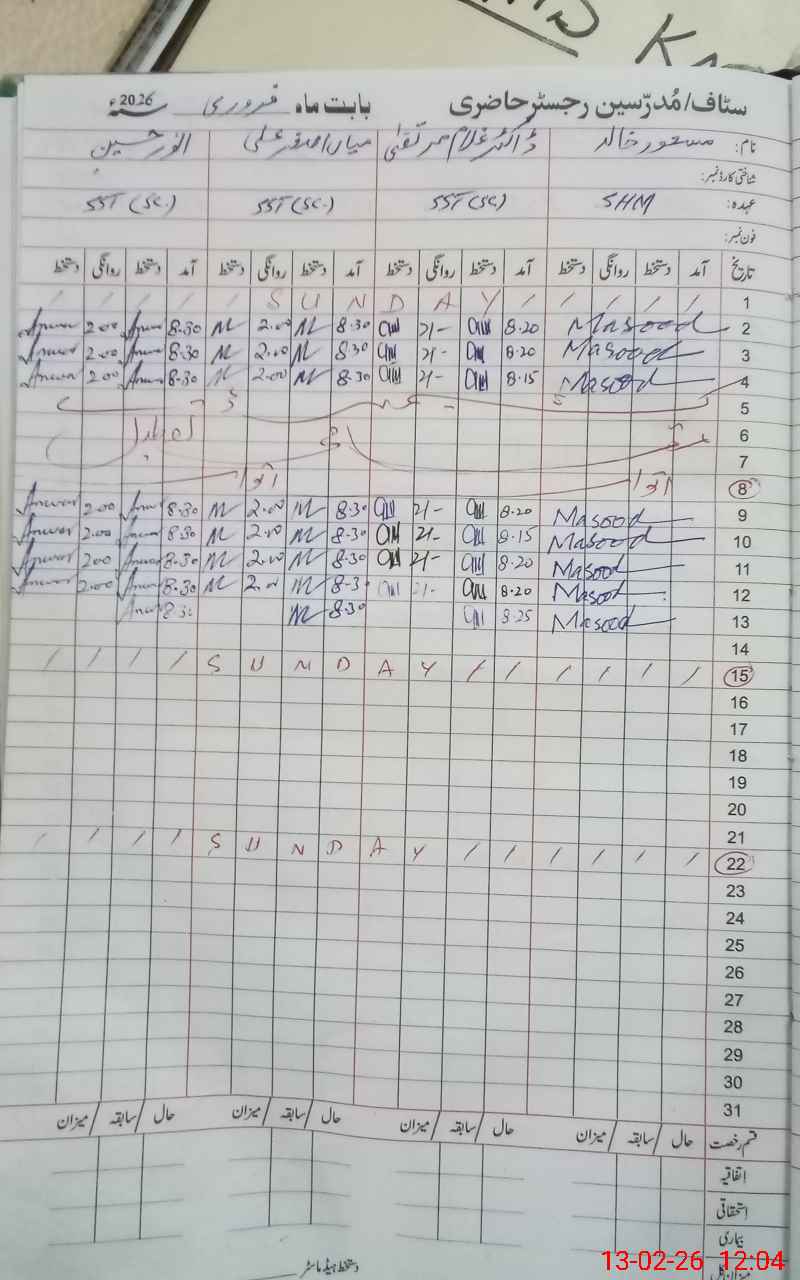 سٹاف/مُدرّسین رجسٹر حاضری بابت ماہ فروری 2026ء
نام: مسعود خالد ڈاکٹر غلام مرتضیٰ میاں اصغر علی انور حسین
شناختی کارڈ نمبر:
عہدہ: SHM SST (SC) SST (SC.) SST (SC.)
فون نمبر:
تاریخ آمد دستخط روانگی دستخط آمد دستخط روانگی دستخط آمد دستخط روانگی دستخط آمد دستخط روانگی دستخط
/ / / / S U N D A Y / / / / / / 1
Anwar 2.00 Anwar 8.30 M 2.00 M 8.30 2/- 8.20 Masood 2
Anwar 2.00 Anwar 8.30 M 2.00 M 8.30 2/- 8.20 Masood 3
Anwar 2.00 Anwar 8.30 M 2.00 M 8.30 2/- 8.15 Masood 4
5
6
7
8
Anwar 2.00 Anwar 8.30 M 2.00 M 8.30 2/- 8.20 Masood 9
Anwar 2.00 Anwar 8.30 M 2.00 M 8.30 2/- 8.15 Masood 10
Anwar 2.00 Anwar 8.30 M 2.00 M 8.30 2/- 8.20 Masood 11
Anwar 2.00 Anwar 8.30 M 2.0 M 8.3 2/- 8.20 Masood 12
Anwar 8.30 M 8.30 8.25 Masood 13
14
/ / / / S U N D A Y / / / / / / 15
16
17
18
19
20
21
/ / / / S U N D A Y / / / / / / 22
23
24
25
26
27
28
29
30
31
قسم رخصت حال / سابقہ / میزان حال / سابقہ / میزان حال / سابقہ / میزان حال / سابقہ / میزان
اتفاقیہ
استحقاقی
بیماری
میزان کل
دستخط ہیڈ ماسٹر
13-02-26 12:04